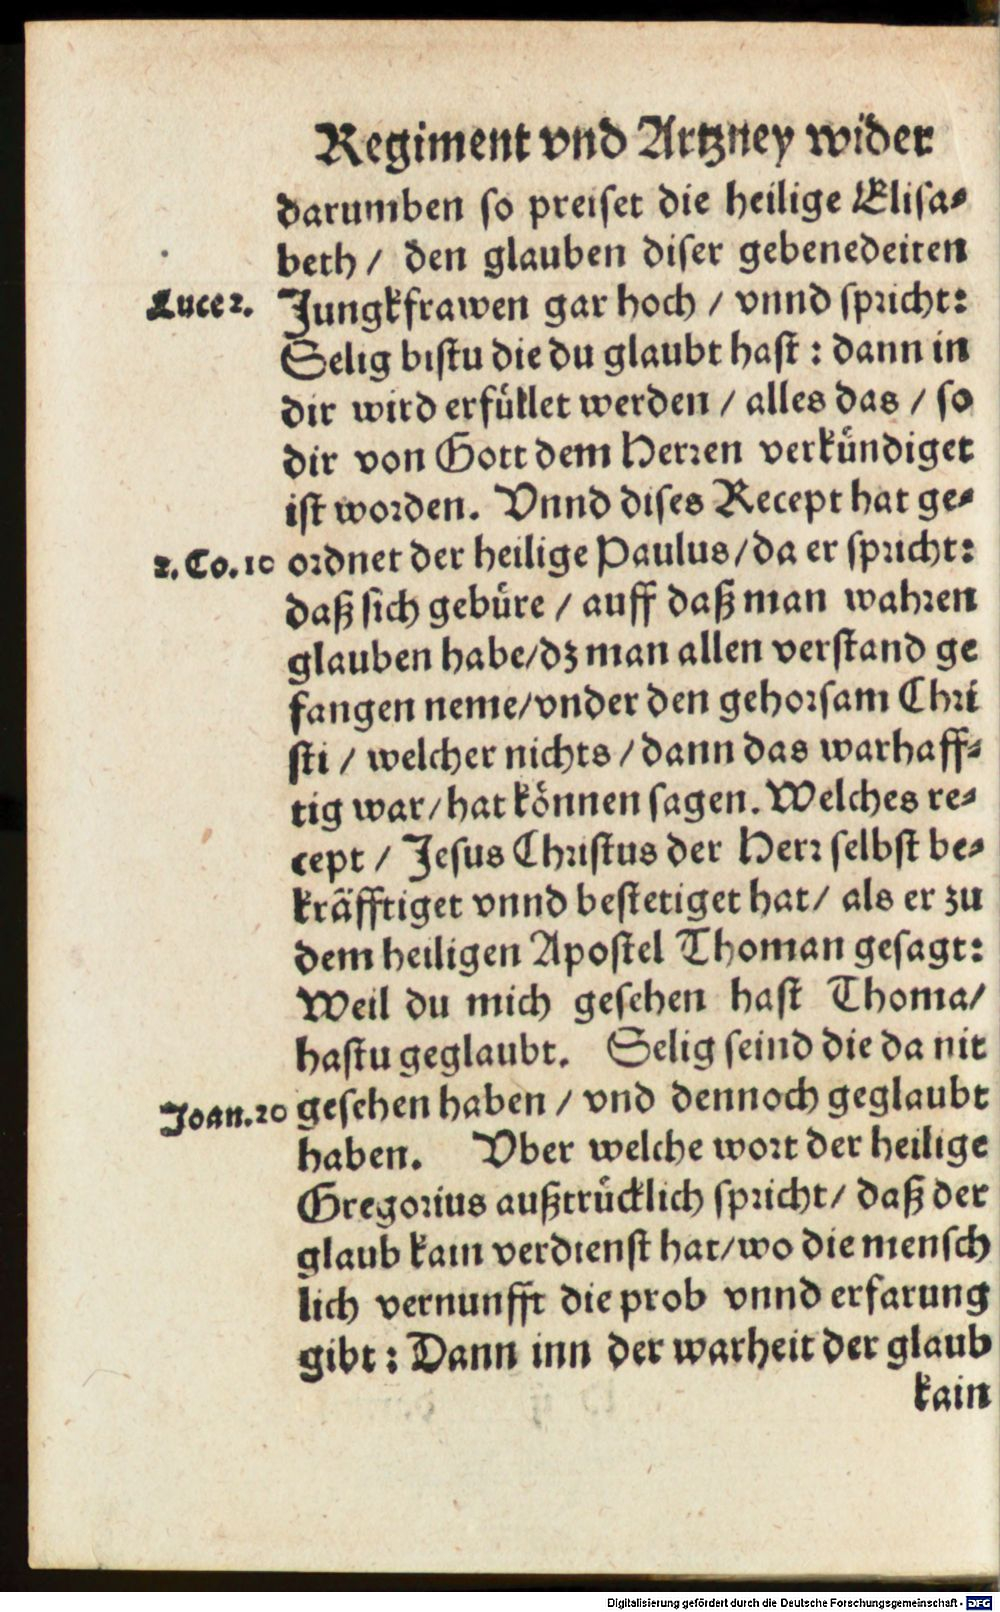 Regiment vnd Artzney wider
darumben so preiset die heilige Elisa-
beth / den glauben diser gebenedeiten
Luce 2.
Jungkfrawen gar hoch / vnnd spricht:
Selig bistu die du glaubt hast : dann in
dir wird erfüllet werden / alles das / so
dir von Gott dem Herren verkündiget
ist worden. Vnnd dises Recept hat ge-
2. Co. 10
ordnet der heilige Paulus / da er spricht:
daß sich gebüre / auff daß man wahren
glauben habe / dz man allen verstand ge
fangen neme / vnder den gehorsam Chri
sti / welcher nichts / dann das warhaff-
tig war / hat können sagen. Welches re-
cept / Jesus Christus der Herr selbst be-
kräfftiget vnnd bestetiget hat / als er zu
dem heiligen Apostel Thoman gesagt:
Weil du mich gesehen hast Thoma /
hastu geglaubt. Selig seind die da nit
Joan. 20
gesehen haben / vnd dennoch geglaubt
haben. Vber welche wort der heilige
Gregorius außtrücklich spricht / daß der
glaub kain verdienst hat / wo die mensch
lich vernunfft die prob vnnd erfarung
gibt : Dann inn der warheit der glaub
kain
Digitalisierung gefördert durch die Deutsche Forschungsgemeinschaft - DFG